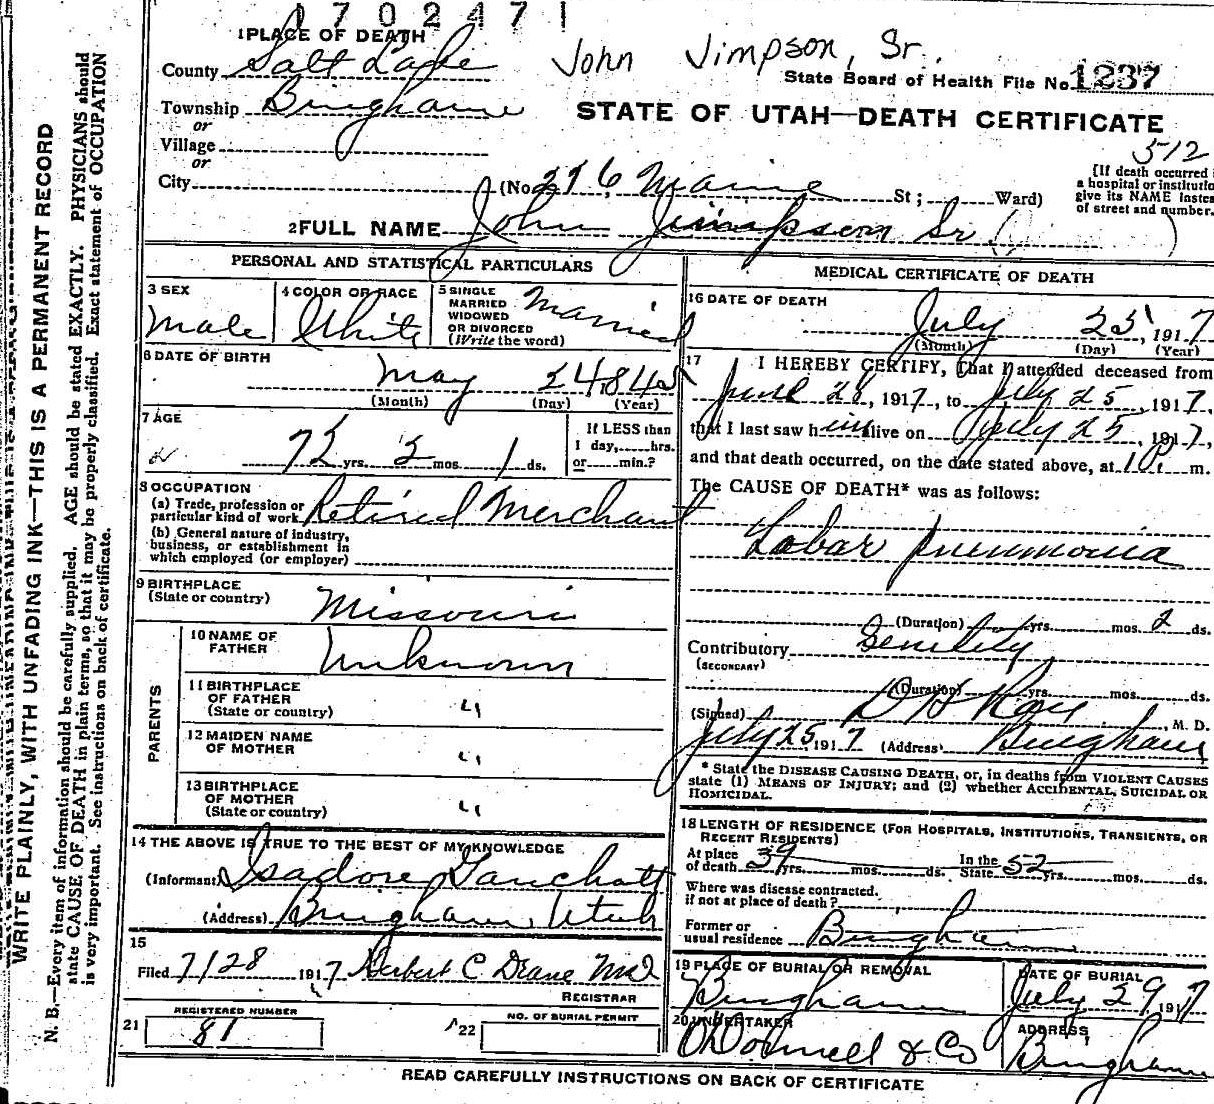 1 7 0 2 4 7 1
1 PLACE OF DEATH
County Salt Lake
John Jimpson, Sr.
State Board of Health File No. 1237
Township Bingham
or
STATE OF UTAH—DEATH CERTIFICATE
Village
or
512
City (No. 276 Maine St ; Ward)
[If death occurred i
a hospital or institutio
give its NAME instea
of street and number.
2 FULL NAME John Jimpson Sr (
)
PERSONAL AND STATISTICAL PARTICULARS
3 SEX
Male
4 COLOR OR RACE
White
5 SINGLE
MARRIED
WIDOWED
OR DIVORCED
(Write the word)
Married
6 DATE OF BIRTH
May 24, 1845
(Month) (Day) (Year)
7 AGE
72 yrs. 2 mos. 1 ds.
If LESS than
1 day, hrs.
or min.?
8 OCCUPATION
(a) Trade, profession or
particular kind of work Retired Merchant
(b) General nature of industry,
business, or establishment in
which employed (or employer)
9 BIRTHPLACE
(State or country) Missouri
PARENTS
10 NAME OF
FATHER Unknown
11 BIRTHPLACE
OF FATHER "
(State or country)
12 MAIDEN NAME
OF MOTHER "
13 BIRTHPLACE
OF MOTHER "
(State or country)
14 THE ABOVE IS TRUE TO THE BEST OF MY KNOWLEDGE
(Informant) Isadore
(Address) Bingham Utah
15
Filed 7/28 1917 Herbert C Deane MD
REGISTRAR
REGISTERED NUMBER
21 81
NO. OF BURIAL PERMIT
22
MEDICAL CERTIFICATE OF DEATH
16 DATE OF DEATH
July 25, 1917
(Month) (Day) (Year)
17 I HEREBY CERTIFY, That I attended deceased from
June 28, 1917, to July 25, 1917,
that I last saw him alive on July 25, 1917,
and that death occurred, on the date stated above, at 10 P. m.
The CAUSE OF DEATH* was as follows:
Lobar pneumonia
(Duration) yrs. mos. 2 ds.
Contributory Senility
(SECONDARY)
(Duration) yrs. mos. ds.
(Signed) D H Ray, M. D.
July 25 1917 (Address) Bingham
* State the DISEASE CAUSING DEATH, or, in deaths from VIOLENT CAUSES
state (1) MEANS OF INJURY; and (2) whether ACCIDENTAL, SUICIDAL OR
HOMICIDAL.
18 LENGTH OF RESIDENCE (FOR HOSPITALS, INSTITUTIONS, TRANSIENTS, OR
RECENT RESIDENTS)
At place
of death 39 yrs. mos. ds.
In the
State 52 yrs. mos. ds.
Where was disease contracted.
if not at place of death?
Former or
usual residence Bingham
19 PLACE OF BURIAL OR REMOVAL
Bingham
DATE OF BURIAL
July 29 1917
20 UNDERTAKER
O'Donnell & Co
ADDRESS
Bingham
READ CAREFULLY INSTRUCTIONS ON BACK OF CERTIFICATE
WRITE PLAINLY, WITH UNFADING INK—THIS IS A PERMANENT RECORD
N. B.—Every item of information should be carefully supplied. AGE should be stated EXACTLY. PHYSICIANS should
state CAUSE OF DEATH in plain terms, so that it may be properly classified. Exact statement of OCCUPATION
is very important. See instructions on back of certificate.